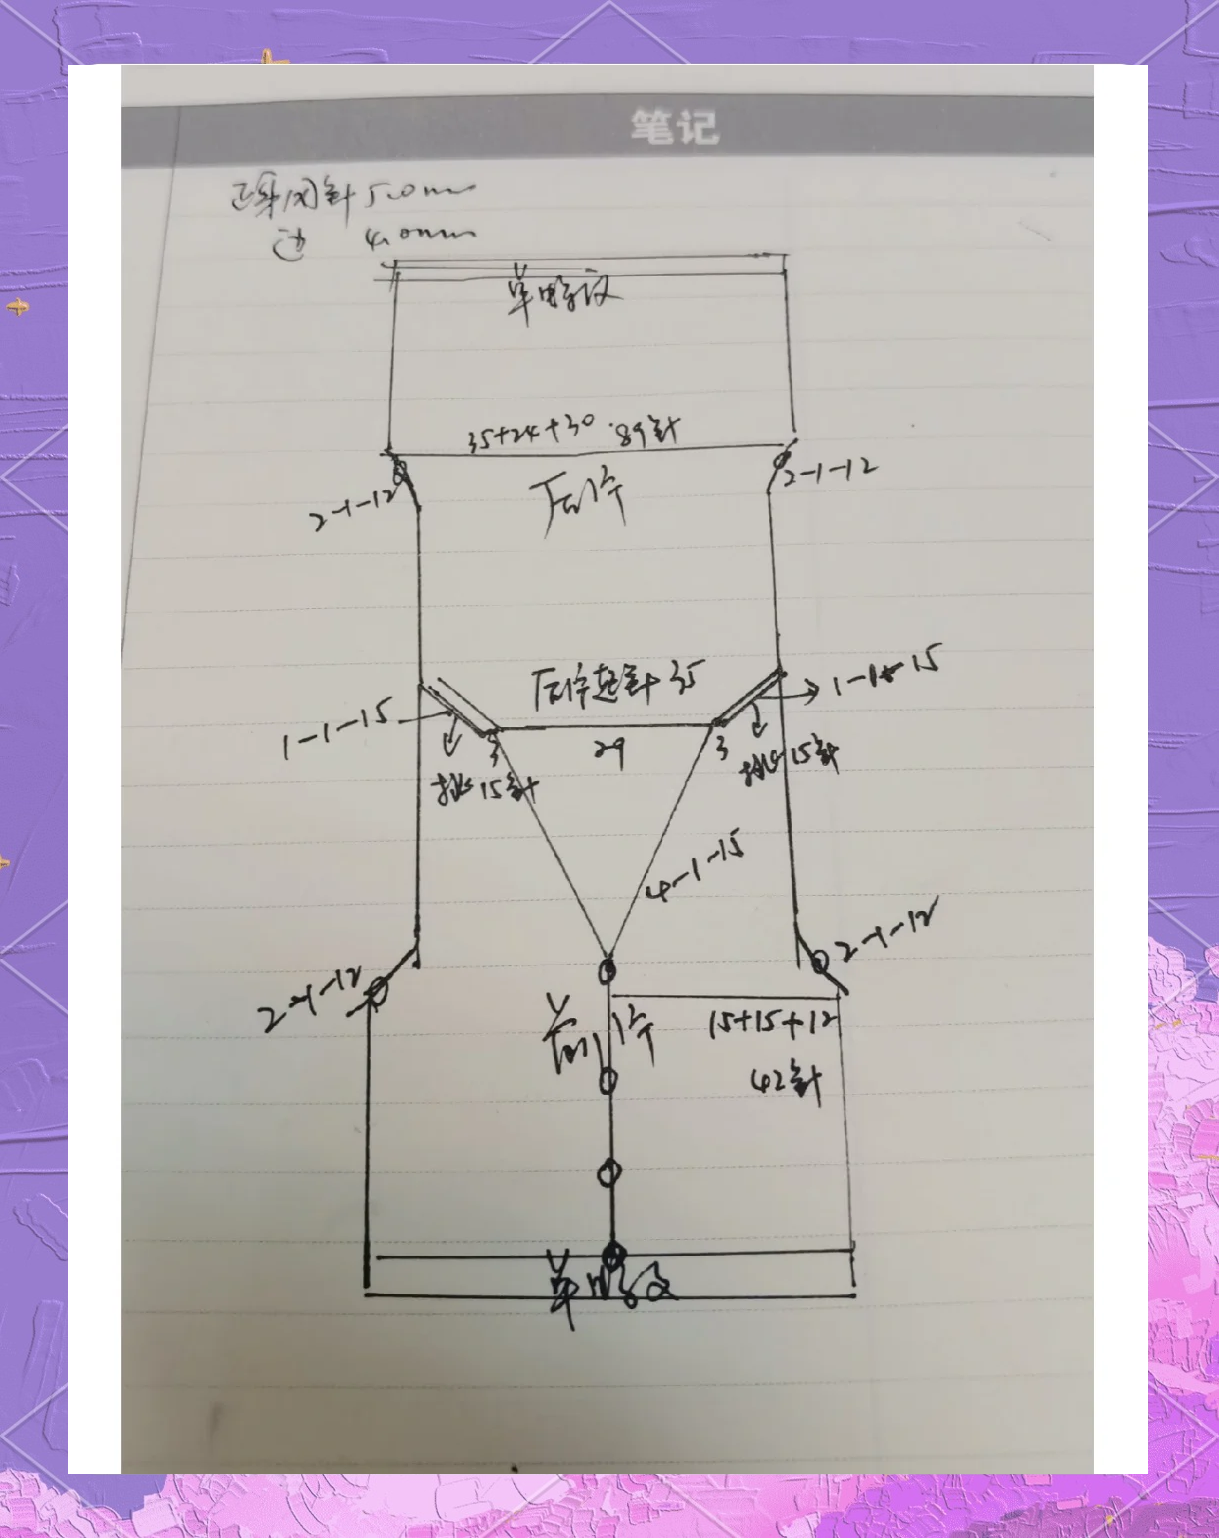 笔记
正身用针5.0mm
边 4.0mm
单螺纹
35+24+30·89针
2-1-12
2-1-12
后片
后片起针35
1-1-15
1-1-15
3
29
3
挑15针
挑15针
4-1-15
2-1-12
2-1-12
前片
15+15+12
42针
单螺纹